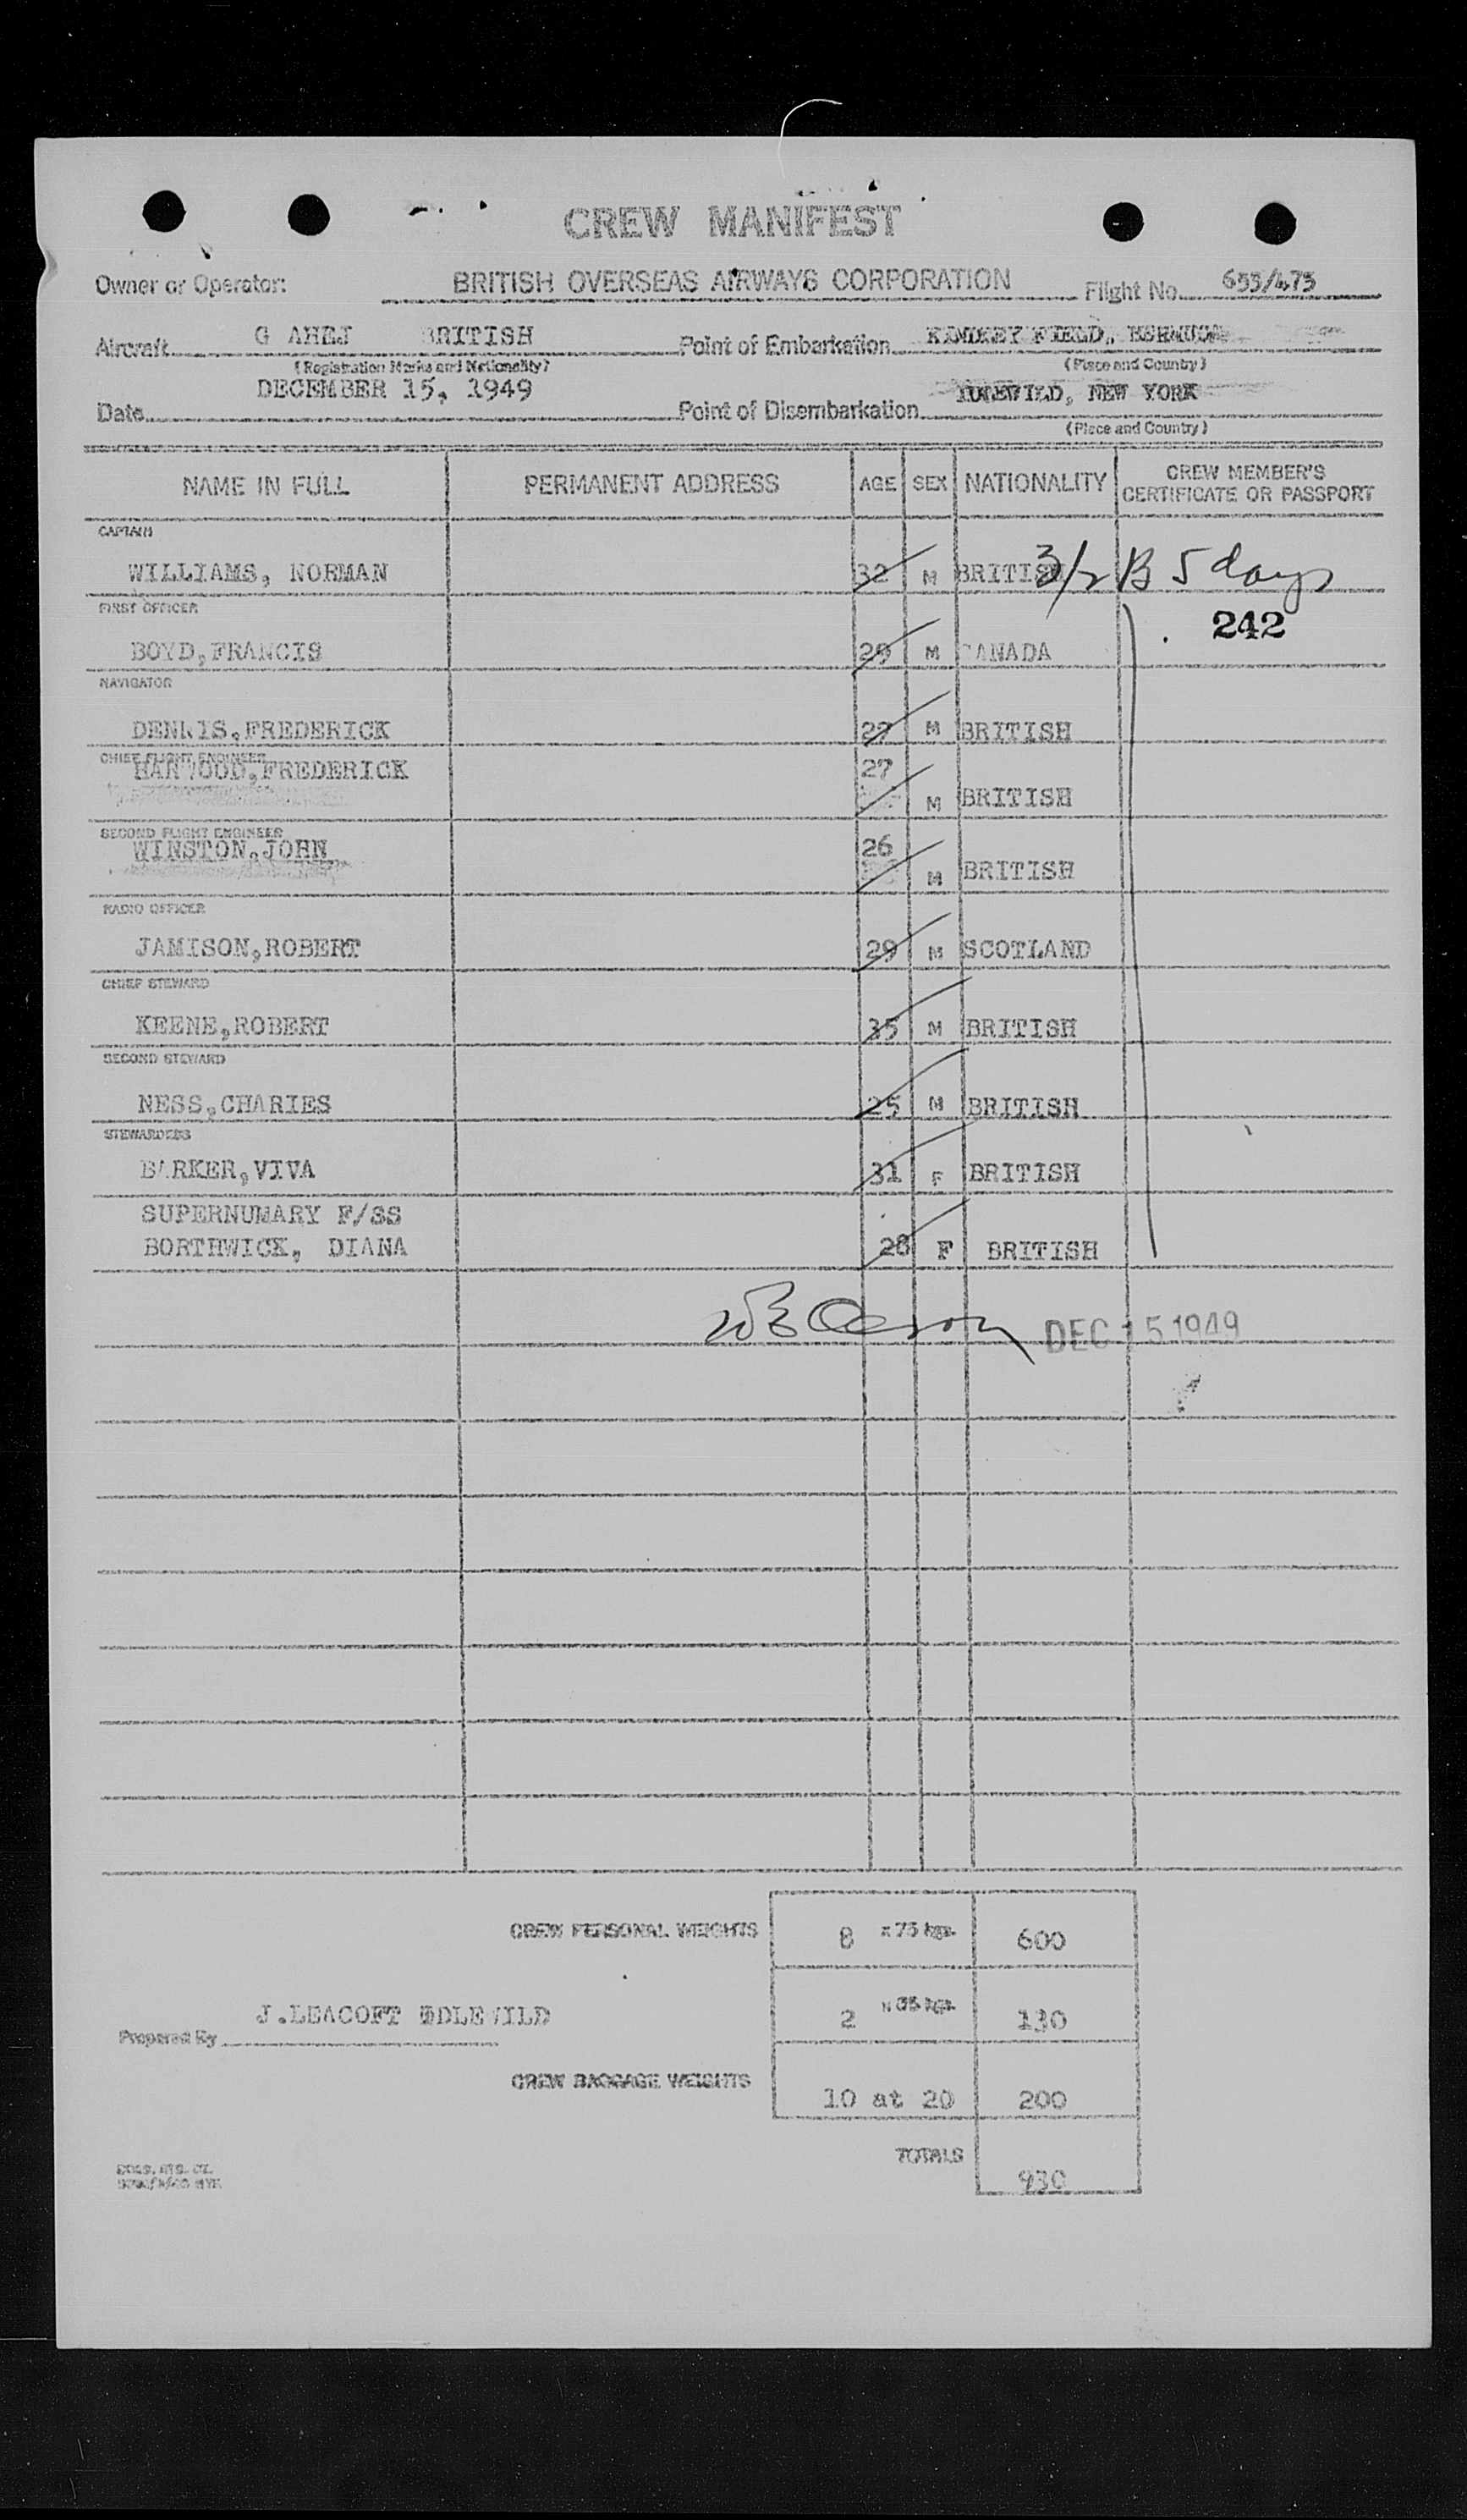 CREW MANIFEST
Owner or Operator: BRITISH OVERSEAS AIRWAYS CORPORATION Flight No. 653/473
Aircraft G AHEJ BRITISH Point of Embarkation KINDLEY FIELD, BERMUDA
(Registration Marks and Nationality) (Place and Country)
Date DECEMBER 15, 1949 Point of Disembarkation IDLEWILD, NEW YORK
(Place and Country)
NAME IN FULL PERMANENT ADDRESS AGE SEX NATIONALITY CREW MEMBER'S CERTIFICATE OR PASSPORT
CAPTAIN
WILLIAMS, NORMAN 32 M BRITISH 3/2 B 5 days
FIRST OFFICER
242
BOYD,FRANCIS 29 M CANADA
NAVIGATOR
DENNIS,FREDERICK 27 M BRITISH
CHIEF FLIGHT ENGINEER
HARWOOD,FREDERICK 27 M BRITISH
SECOND FLIGHT ENGINEER
WINSTON,JOHN 26 M BRITISH
RADIO OFFICER
JAMISON,ROBERT 29 M SCOTLAND
CHIEF STEWARD
KEENE,ROBERT 35 M BRITISH
SECOND STEWARD
NESS,CHARIES 25 M BRITISH
STEWARDESS
BARKER,VIVA 31 F BRITISH
SUPERNUMARY F/SS
BORTHWICK, DIANA 28 F BRITISH
DEC 15 1949
CREW PERSONAL WEIGHTS 8 x 75 kgs. 600
2 x 65 kgs. 130
Prepared By J.LEACOFT IDLEWILD
CREW BAGGAGE WEIGHTS 10 at 20 200
TOTALS 930